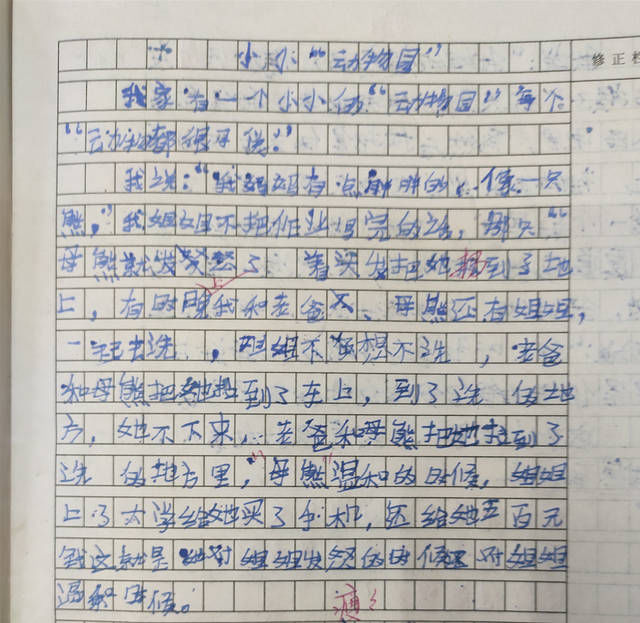 小小“动物园”
修正栏
我家有一个小小的“动物园”每个
“动物都很可供。”
我说：“我妈妈有点胖胖的，像一只
熊，”我姐姐不把作业写完的话，那只“
母熊就发怒了 着头发把她 到了地
上，有时晚我和老爸又、母熊还有姐姐，
一起去洗，姐姐不 想不洗，老爸
和母熊把她拉到了车上，到了洗 的地
方，她不下来，老爸和母熊把她拉到了
洗 的地方里，“母熊”温和的时候，姐姐
上了大学给她买了手机，还给她五百元
钱这就是 她对姐姐发怒的时候 对姐姐
温和 时候。
瘦